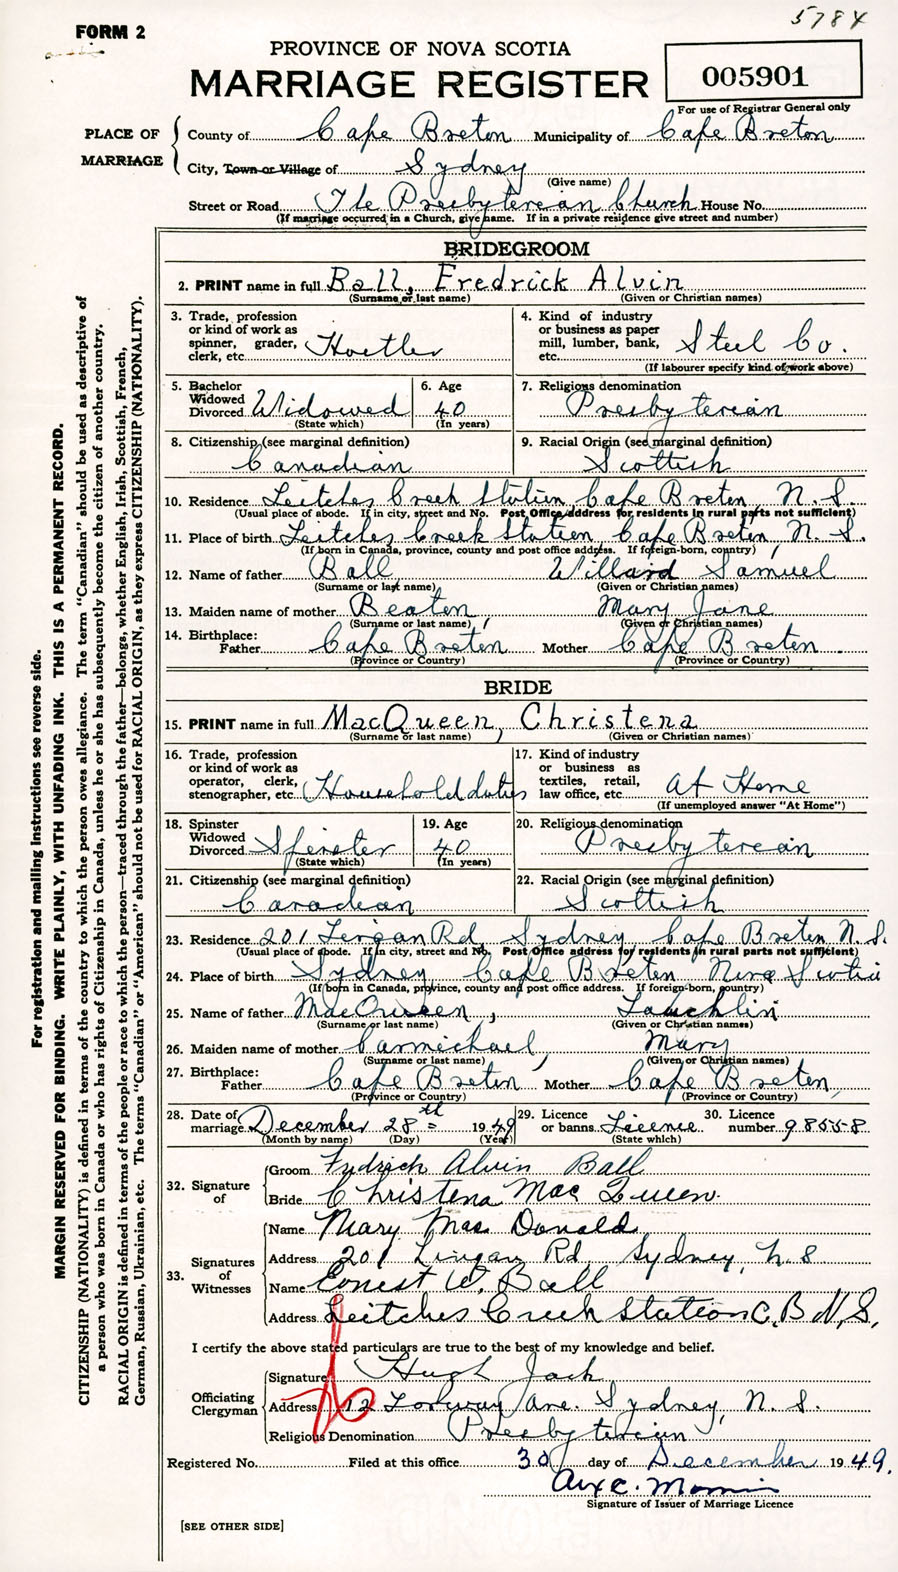 5784
FORM 2
PROVINCE OF NOVA SCOTIA
MARRIAGE REGISTER
005901
For use of Registrar General only
PLACE OF MARRIAGE
County of Cape Breton Municipality of Cape Breton
City, Town or Village of Sydney
(Give name)
Street or Road The Presbyterian Church House No.
(If marriage occurred in a Church, give name. If in a private residence give street and number)
BRIDEGROOM
2. PRINT name in full Ball, Fredrick Alvin
(Surname or last name) (Given or Christian names)
3. Trade, profession or kind of work as spinner, grader, clerk, etc. Hostler
4. Kind of industry or business as paper mill, lumber, bank, etc. Steel Co.
(If labourer specify kind of work above)
5. Bachelor Widowed Divorced Widowed
(State which)
6. Age 40
(In years)
7. Religious denomination Presbyterian
8. Citizenship (see marginal definition) Canadian
9. Racial Origin (see marginal definition) Scottish
10. Residence Leitches Creek Station Cape Breton, N.S.
(Usual place of abode. If in city, street and No. Post Office address for residents in rural parts not sufficient)
11. Place of birth Leitches Creek Station, Cape Breton, N.S.
(If born in Canada, province, county and post office address. If foreign-born, country)
12. Name of father Ball Willard Samuel
(Surname or last name) (Given or Christian names)
13. Maiden name of mother Beaton, Mary Jane
(Surname or last name) (Given or Christian names)
14. Birthplace: Father Cape Breton Mother Cape Breton
(Province or Country) (Province or Country)
BRIDE
15. PRINT name in full MacQueen, Christena
(Surname or last name) (Given or Christian names)
16. Trade, profession or kind of work as operator, clerk, stenographer, etc. Household duties
17. Kind of industry or business as textiles, retail, law office, etc. At Home
(If unemployed answer "At Home")
18. Spinster Widowed Divorced Spinster
(State which)
19. Age 40
(In years)
20. Religious denomination Presbyterian
21. Citizenship (see marginal definition) Canadian
22. Racial Origin (see marginal definition) Scottish
23. Residence 201 Lingan Rd, Sydney, Cape Breton, N.S.
(Usual place of abode. If in city, street and No. Post Office address for residents in rural parts not sufficient)
24. Place of birth Sydney Cape Breton Nova Scotia
(If born in Canada, province, county and post office address. If foreign-born, country)
25. Name of father MacQueen, Lauchlin
(Surname or last name) (Given or Christian names)
26. Maiden name of mother Carmichael, Mary
(Surname or last name) (Given or Christian names)
27. Birthplace: Father Cape Breton Mother Cape Breton
(Province or Country) (Province or Country)
28. Date of marriage December 28th 1949
(Month by name) (Day) (Year)
29. Licence or banns Licence
(State which)
30. Licence number 98558
32. Signature of
Groom Fredrick Alvin Ball
Bride Christena MacQueen.
33. Signatures of Witnesses
Name Mary MacDonald
Address 201 Lingan Rd Sydney, N.S
Name Ernest W. Ball
Address Leitches Creek Station C.B N.S.
I certify the above stated particulars are true to the best of my knowledge and belief.
Officiating Clergyman
Signature Hugh Jack
Address 12 Ave. Sydney, N.S.
Religious Denomination Presbyterian
Registered No. Filed at this office 30 day of December 1949.
Signature of Issuer of Marriage Licence
[SEE OTHER SIDE]
For registration and mailing instructions see reverse side.
MARGIN RESERVED FOR BINDING. WRITE PLAINLY, WITH UNFADING INK. THIS IS A PERMANENT RECORD.
CITIZENSHIP (NATIONALITY) is defined in terms of the country to which the person owes allegiance. The term "Canadian" should be used as descriptive of
a person who was born in Canada or who has rights of Citizenship in Canada, unless he or she has subsequently become the citizen of another country.
RACIAL ORIGIN is defined in terms of the people or race to which the person—traced through the father—belongs, whether English, Irish, Scottish, French,
German, Russian, Ukrainian, etc. The terms "Canadian" or "American" should not be used for RACIAL ORIGIN, as they express CITIZENSHIP (NATIONALITY).